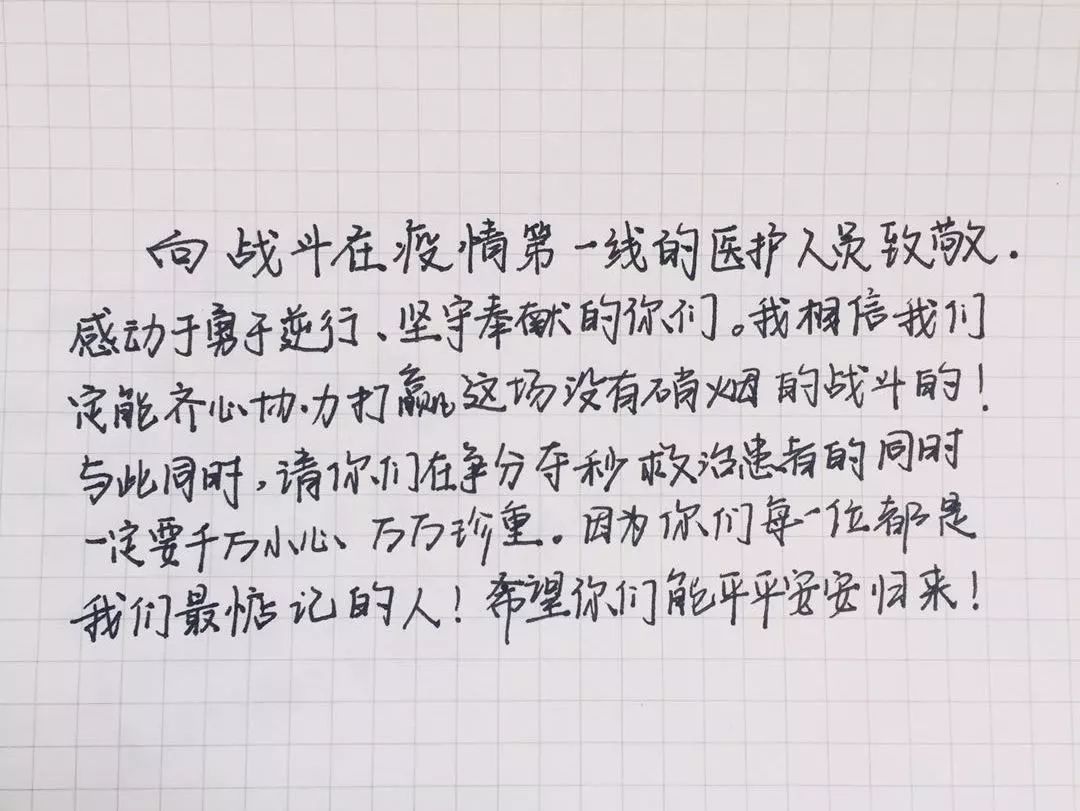 向战斗在疫情第一线的医护人员致敬.
感动于勇于逆行、坚守奉献的你们。我相信我们
定能齐心协力打赢这场没有硝烟的战斗的！
与此同时,请你们在争分夺秒救治患者的同时
一定要千万小心、万万珍重。因为你们每一位都是
我们最惦记的人！希望你们能平平安安归来！